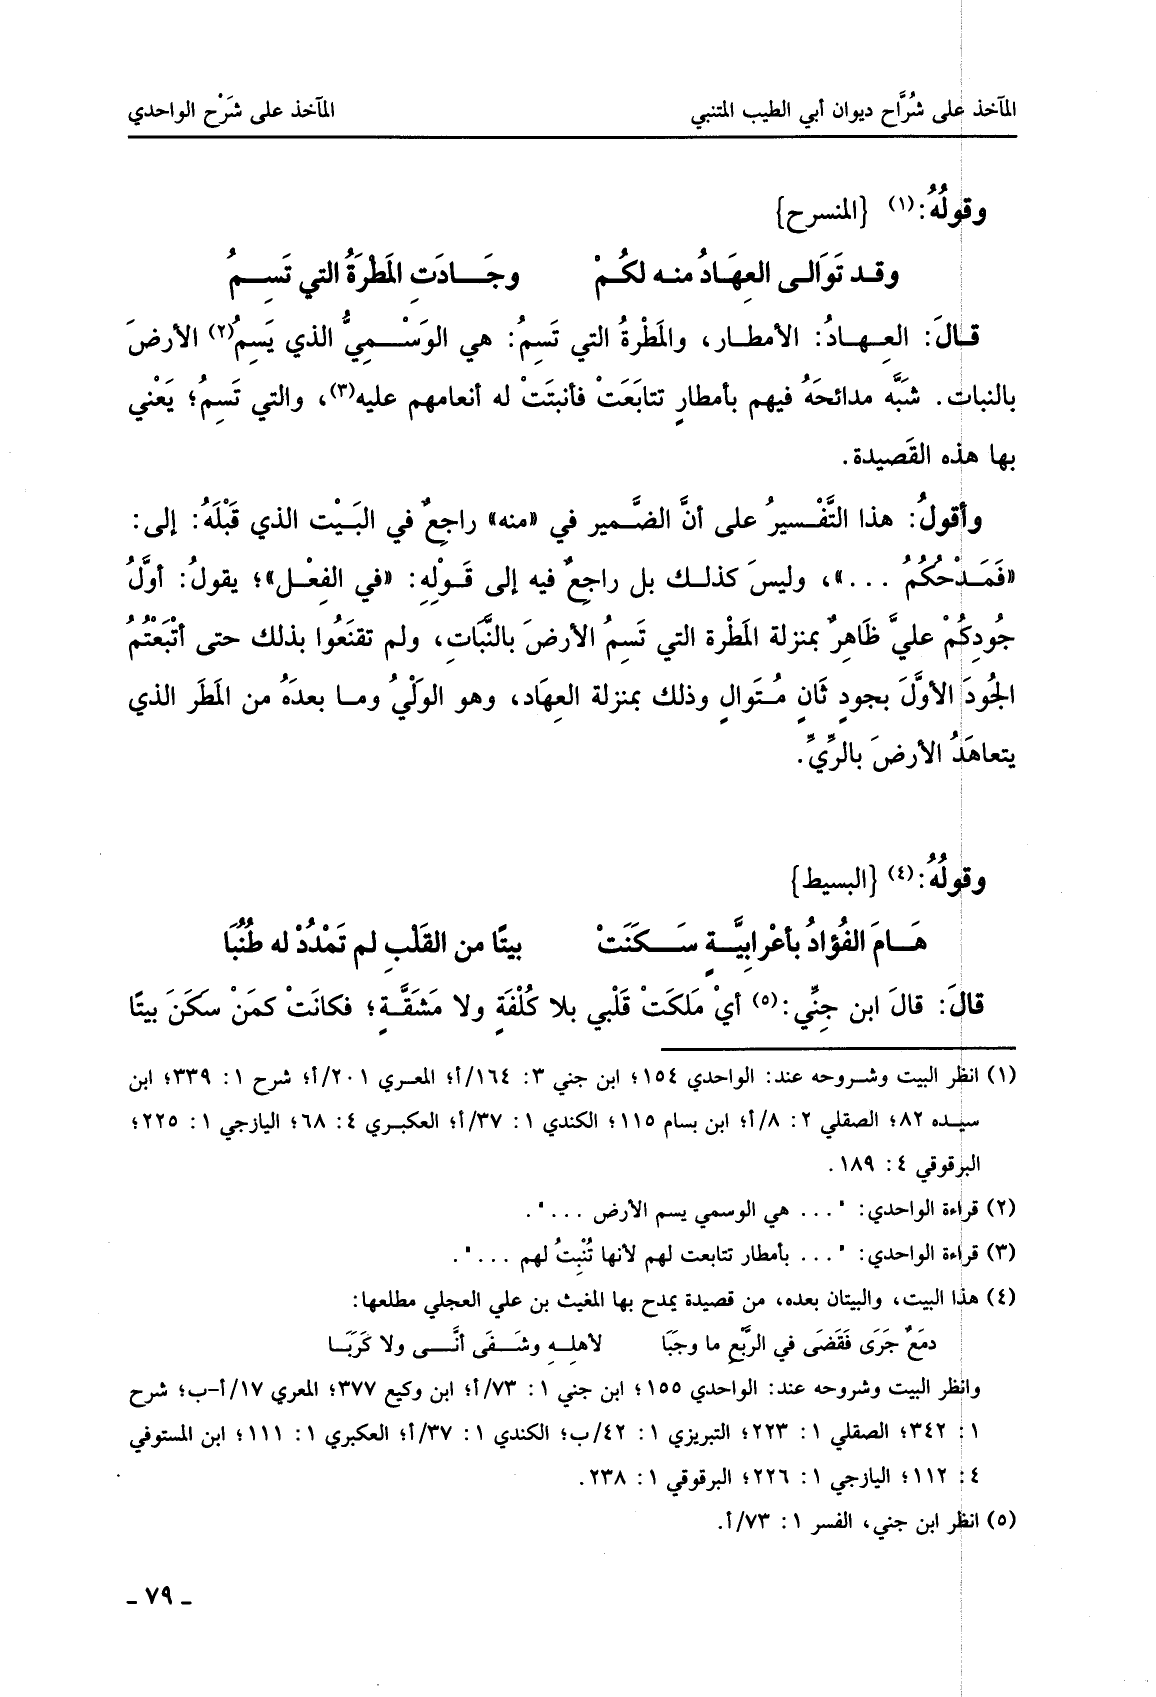 المآخذ على شُرَّاح ديوان أبي الطيب المتنبي المآخذ على شَرْح الواحدي
وقولُهُ:(١) {المنسرح}
وقـد تَوَالـى العِهَـادُ منـه لكُمْ وجَـــادَتِ المَطْرَةُ التي تَسِـــمُ
قـالَ: العِـهـادُ: الأمطـار، والمَطْرةُ التي تَسِمُ: هي الوَسْــمِيُّ الذي يَسِمُ(٢) الأرضَ
بالنبات. شَبَّه مدائحَهُ فيهم بأمطارٍ تتابَعَتْ فأنبتَتْ له أنعامهم عليه(٣)، والتي تَسِمُ؛ يَعْني
بها هذه القَصيدة.
وأقولُ: هذا التَّفْـسيرُ على أنَّ الضَّـمير في «منه» راجِعٌ في البَـيْت الذي قَبْلَهُ: إلى:
«فَمَـدْحُكُمُ ...»، وليسَ كذلـك بل راجِعٌ فيه إلى قَـوْلِهِ: «في الفِعْـل»؛ يقولُ: أوَّلُ
جُودِكُمْ عليَّ ظَاهِرٌ بمنزلة المَطْرة التي تَسِمُ الأرضَ بالنَّبَاتِ، ولم تقنَعُوا بذلك حتى أتْبَعْتُمُ
الجُودَ الأوَّلَ بجودٍ ثَانٍ مُـتَوالٍ وذلك بمنزلة العِهَاد، وهو الوَلْيُ ومـا بعدَهُ من المَطَر الذي
يتعاهَدُ الأرضَ بالرِّيِّ.
وقولُهُ:(٤) {البسيط}
هَـامَ الفُؤادُ بأعْرابِيَّـةٍ سَـــكَنَتْ بيتًا من القَلْبِ لم تَمْدُدْ له طُنُبَا
قَالَ: قالَ ابن جِنِّي:(٥) أيْ مَلَكَتْ قَلْبي بلا كُلْفَةٍ ولا مَشَقَّـةٍ؛ فكانَتْ كمَنْ سَكَنَ بيتًا
(١) انظر البيت وشـروحه عند: الواحدي ١٥٤؛ ابن جني ٣: ١٦٤/أ؛ المعري ٢٠١/أ؛ شرح ١: ٣٣٩؛ ابن
سيـده ٨٢؛ الصقلي ٢: ٨/أ؛ ابن بسام ١١٥؛ الكندي ١: ٣٧/أ؛ العكبـري ٤: ٦٨؛ اليازجي ١: ٢٢٥؛
البرقوقي ٤: ١٨٩.
(٢) قراءة الواحدي: "... هي الوسمي يسم الأرض ...".
(٣) قراءة الواحدي: "... بأمطار تتابعت لهم لأنها تُنْبِتُ لهم ...".
(٤) هذا البيت، والبيتان بعده، من قصيدة يمدح بها المغيث بن علي العجلي مطلعها:
دمعٌ جَرَى فَقَضَى في الرَّبْعِ ما وجَبَا لأهلِـهِ وشَـــفَى أنَّـــى ولا كَرَبَـا
وانظر البيت وشروحه عند: الواحدي ١٥٥؛ ابن جني ١: ٧٣/أ؛ ابن وكيع ٣٧٧؛ المعري ١٧/أ-ب؛ شرح
١: ٣٤٢؛ الصقلي ١: ٢٢٣؛ التبريزي ١: ٤٢/ب؛ الكندي ١: ٣٧/أ؛ العكبري ١: ١١١؛ ابن المستوفي
٤: ١١٢؛ اليازجي ١: ٢٢٦؛ البرقوقي ١: ٢٣٨.
(٥) انظر ابن جني، الفسر ١: ٧٣/أ.
ـ ٧٩ ـ